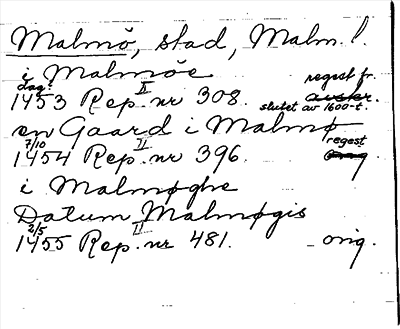 Malmö, stad, Malm. l.
i Malmöe
dag? 1453 Rep. II nr 308. regest fr. slutet av 1600-t.
en Gaard i Malmø
7/10 1454 Rep. II nr 396. regest
i Malmøghe
Datum Malmøgis
2/5 1455 Rep. II nr 481. orig.